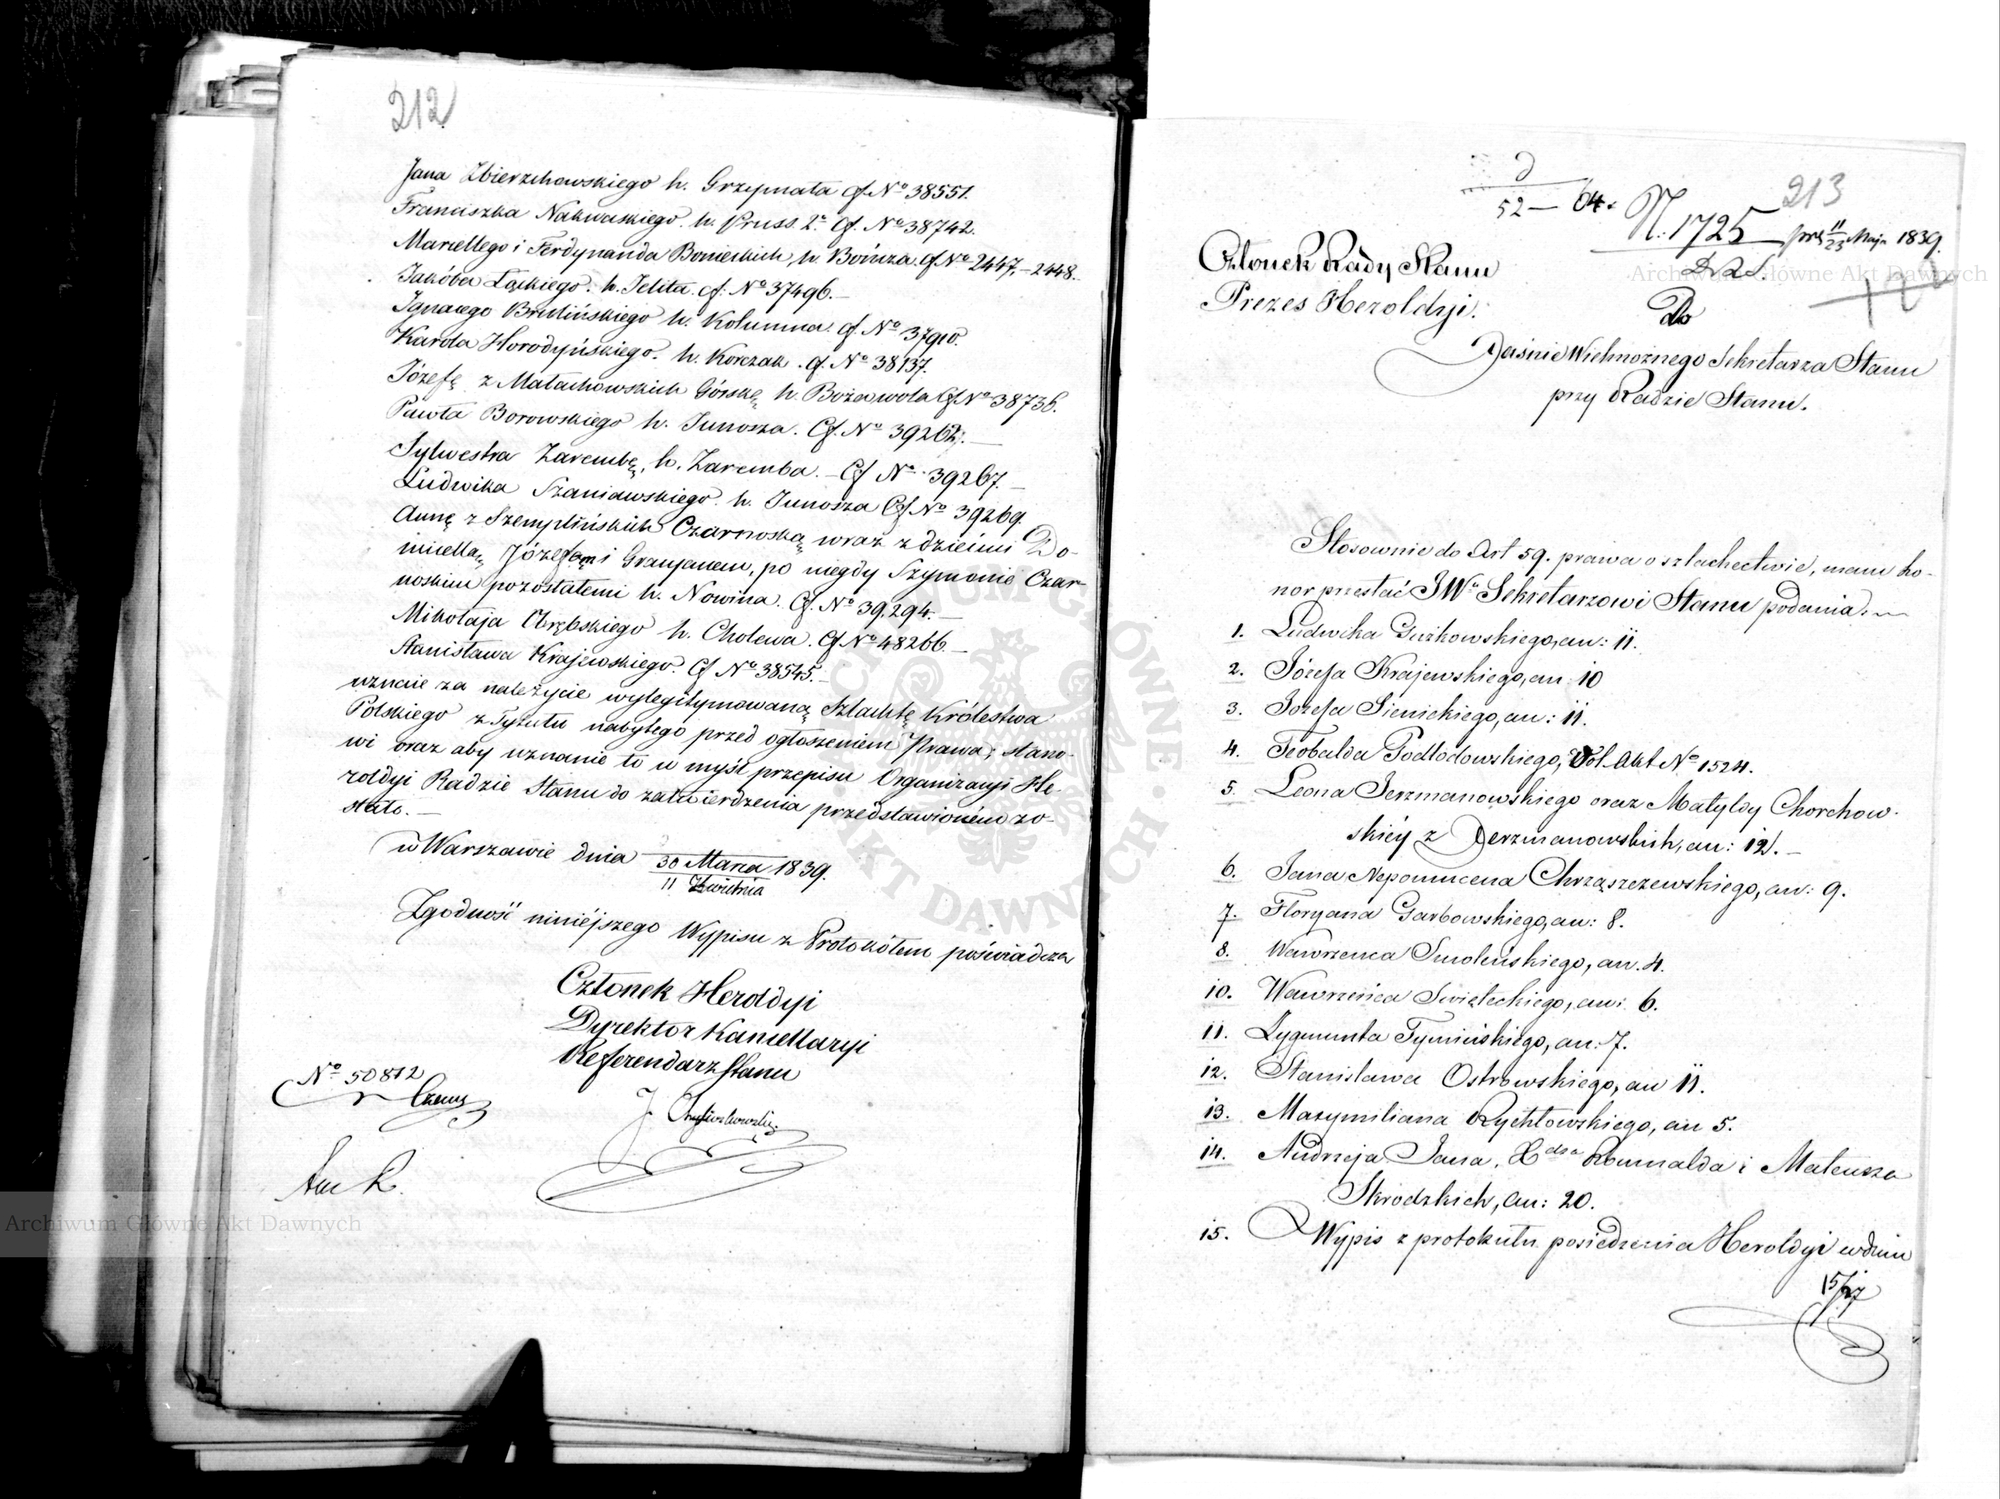 212
Jana Zbierzchowskiego h. Grzymała Cf. No 38551.
Franciszka Nakwaskiego h. Pruss 2o Cf. No 38742.
Marcellego i Ferdynanda Bonieckich h. Bończa Cf No 2447.-2448.
Jakóba Łąckiego h. Jelita cf: No 37496.-
Ignacego Brulińskiego h. Kolumna Cf No 37910.
Karola Horodyńskiego h. Korczak . Cf. No 38137.
Józefę z Małachowskich Górskę h. Bożawola Cf No 38736.
Pawła Borowskiego h. Junosza. Cf. No 39262.-
Sylwestra Zarembę, h. Zaremba. - Cf No 39267.-
Ludwika Szaniawskiego h. Junosza Cf No 39269.
Annę z Szemplińskich Czarnoską wraz z dziećmi Do-
micellą, Józefem i Grasyanem, po niegdy Szymonie Czar-
noskim pozostałemi h. Nowina. Cf. No 39,294.-
Mikołaja Chrębskiego h. Cholewa. Cf No 48266.-
Stanisława Krajewskiego Cf No 38545.-
uznaie za należycie wylegitymowaną Szlachtę Królestwa
Polskiego z Tytułu nabytego przed ogłoszeniem Prawa; stano-
wi oraz aby uznanie to w myśl przepisu Organizacyi He-
roldyi Radzie Stanu do zatwierdzenia przedstawioném zo-
stało. -
w Warszawie dnia 30 Marca 1839.
11 Kwietnia
Zgodność niniéjszego Wypisu z Protokółem poświadcza
Członek Heroldyi
Dyrektor Kancellaryi
Referendarz Stanu
No 50812
213
52 - 64.
N: 1725 11/23 Maja 1839.
Członek Rady Stanu
Prezes Heroldyi.
Do
Jaśnie Wielmożnego Sekretarza Stanu
przy Radzie Stanu.
Stosownie do Art 59. prawa o szlachectwie, mam ho-
nor przesłać JWu Sekretarzowi Stanu podania.
1. Ludwika Gużkowskiego, an: 11.
2. Józefa Krajewskiego, an 10
3. Józefa Sienickiego, an: 11.
4. Teobalda Podlodowskiego, Vol. Akt No 1524.
5. Leona Jerzmanowskiego oraz Matyldy Chorchow-
skiéy z Jerzmanowskich, an: 12. -
6. Jana Nepomucena Chrząszczewskiego, an: 9.
7. Floryana Garbowskiego, an: 8.
8. Wawrzeńca Smoleńskiego, an. 4.
10. Wawrzeńca Swięteckiego, an: 6.
11. Zygmunta Tymińskiego, an: 7.
12. Stanisława Ostrowskiego, an 11.
13. Maxymiliana Rychłowskiego, an 5.
14. Andrzeja Jana, Xdza Romualda i Mateusza
Skrodzkich, an: 20.
15. Wypis z protokułu posiedzenia Heroldyi w dniu
15/27
Archiwum Główne Akt Dawnych
Archiwum Główne Akt Dawnych
ARCHIWUM GŁÓWNE AKT DAWNYCH